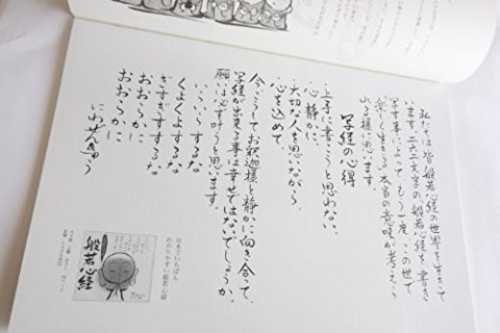 私たちは皆般若心経の世界を生きて
います。二六二文字の般若心経を、書き
写す事によって、もう一度、この世で
楽しく生きる本当の意味が考えら
れる様に思います。
写経の心得
・上手に書こうと思わない。
・心静かに
・大切な人を思いながら、
・心を込めて
今、こうしてお釈迦様と静かに向き合って、
写経が出来る事は幸せではないでしょうか。
願いは必ず叶うと思います。
いらいらするな
くよくよするな
ぎすぎすするな
おおらかに
おおらかに
日本でいちばん
わかりやすい般若心経
般若心経